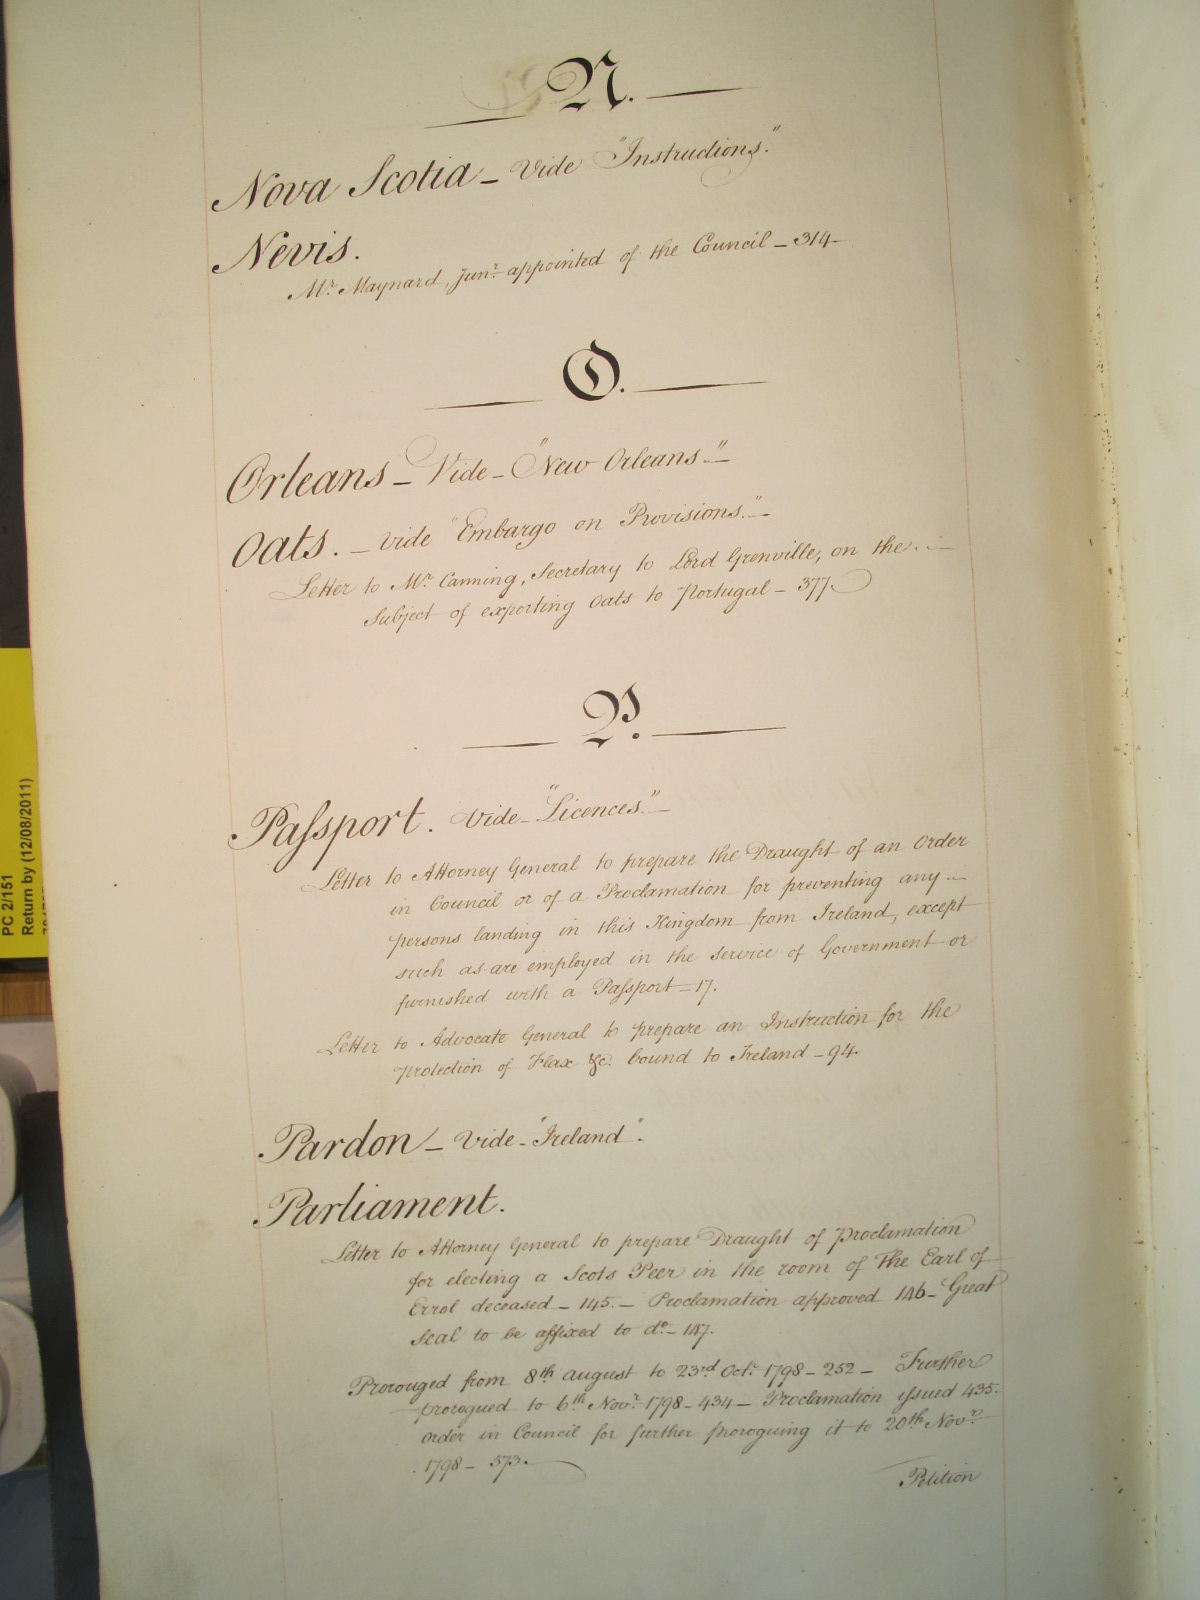 N.
Nova Scotia - Vide "Instructions."
Nevis.
Mr. Maynard, Junr. appointed of the Council - 314 -
O.
Orleans - Vide - "New Orleans" -
Oats. - vide "Embargo on Provisions." -
Letter to Mr. Canning, Secretary to Lord Grenville, on the . -
subject of exporting Oats to Portugal - 377.
P.
Paſsport. Vide - "Licences." -
Letter to Attorney General to prepare the Draught of an Order
in Council or of a Proclamation for preventing any -
persons landing in this Kingdom from Ireland, except
such as are employed in the service of Government or
furnished with a Paſsport - 17.
Letter to Advocate General to prepare an Instruction for the
protection of Flax &c. bound to Ireland - 94.
Pardon - Vide - "Ireland".
Parliament.
Letter to Attorney General to prepare Draught of Proclamation
for electing a Scots Peer in the room of The Earl of
Errol deceased - 145. - Proclamation approved 146 - Great
Seal to be affixed to do. - 147.
Prorouged from 8th. August to 23rd. Octr. 1798 - 252 - Further
prorogued to 6th. Novr. 1798 - 434 - Proclamation iſsued 435 -
order in Council for further proroguing it to 20th. Novr.
1798 - 573. -
Petition
PC 2/151
Return by (12/08/2011)